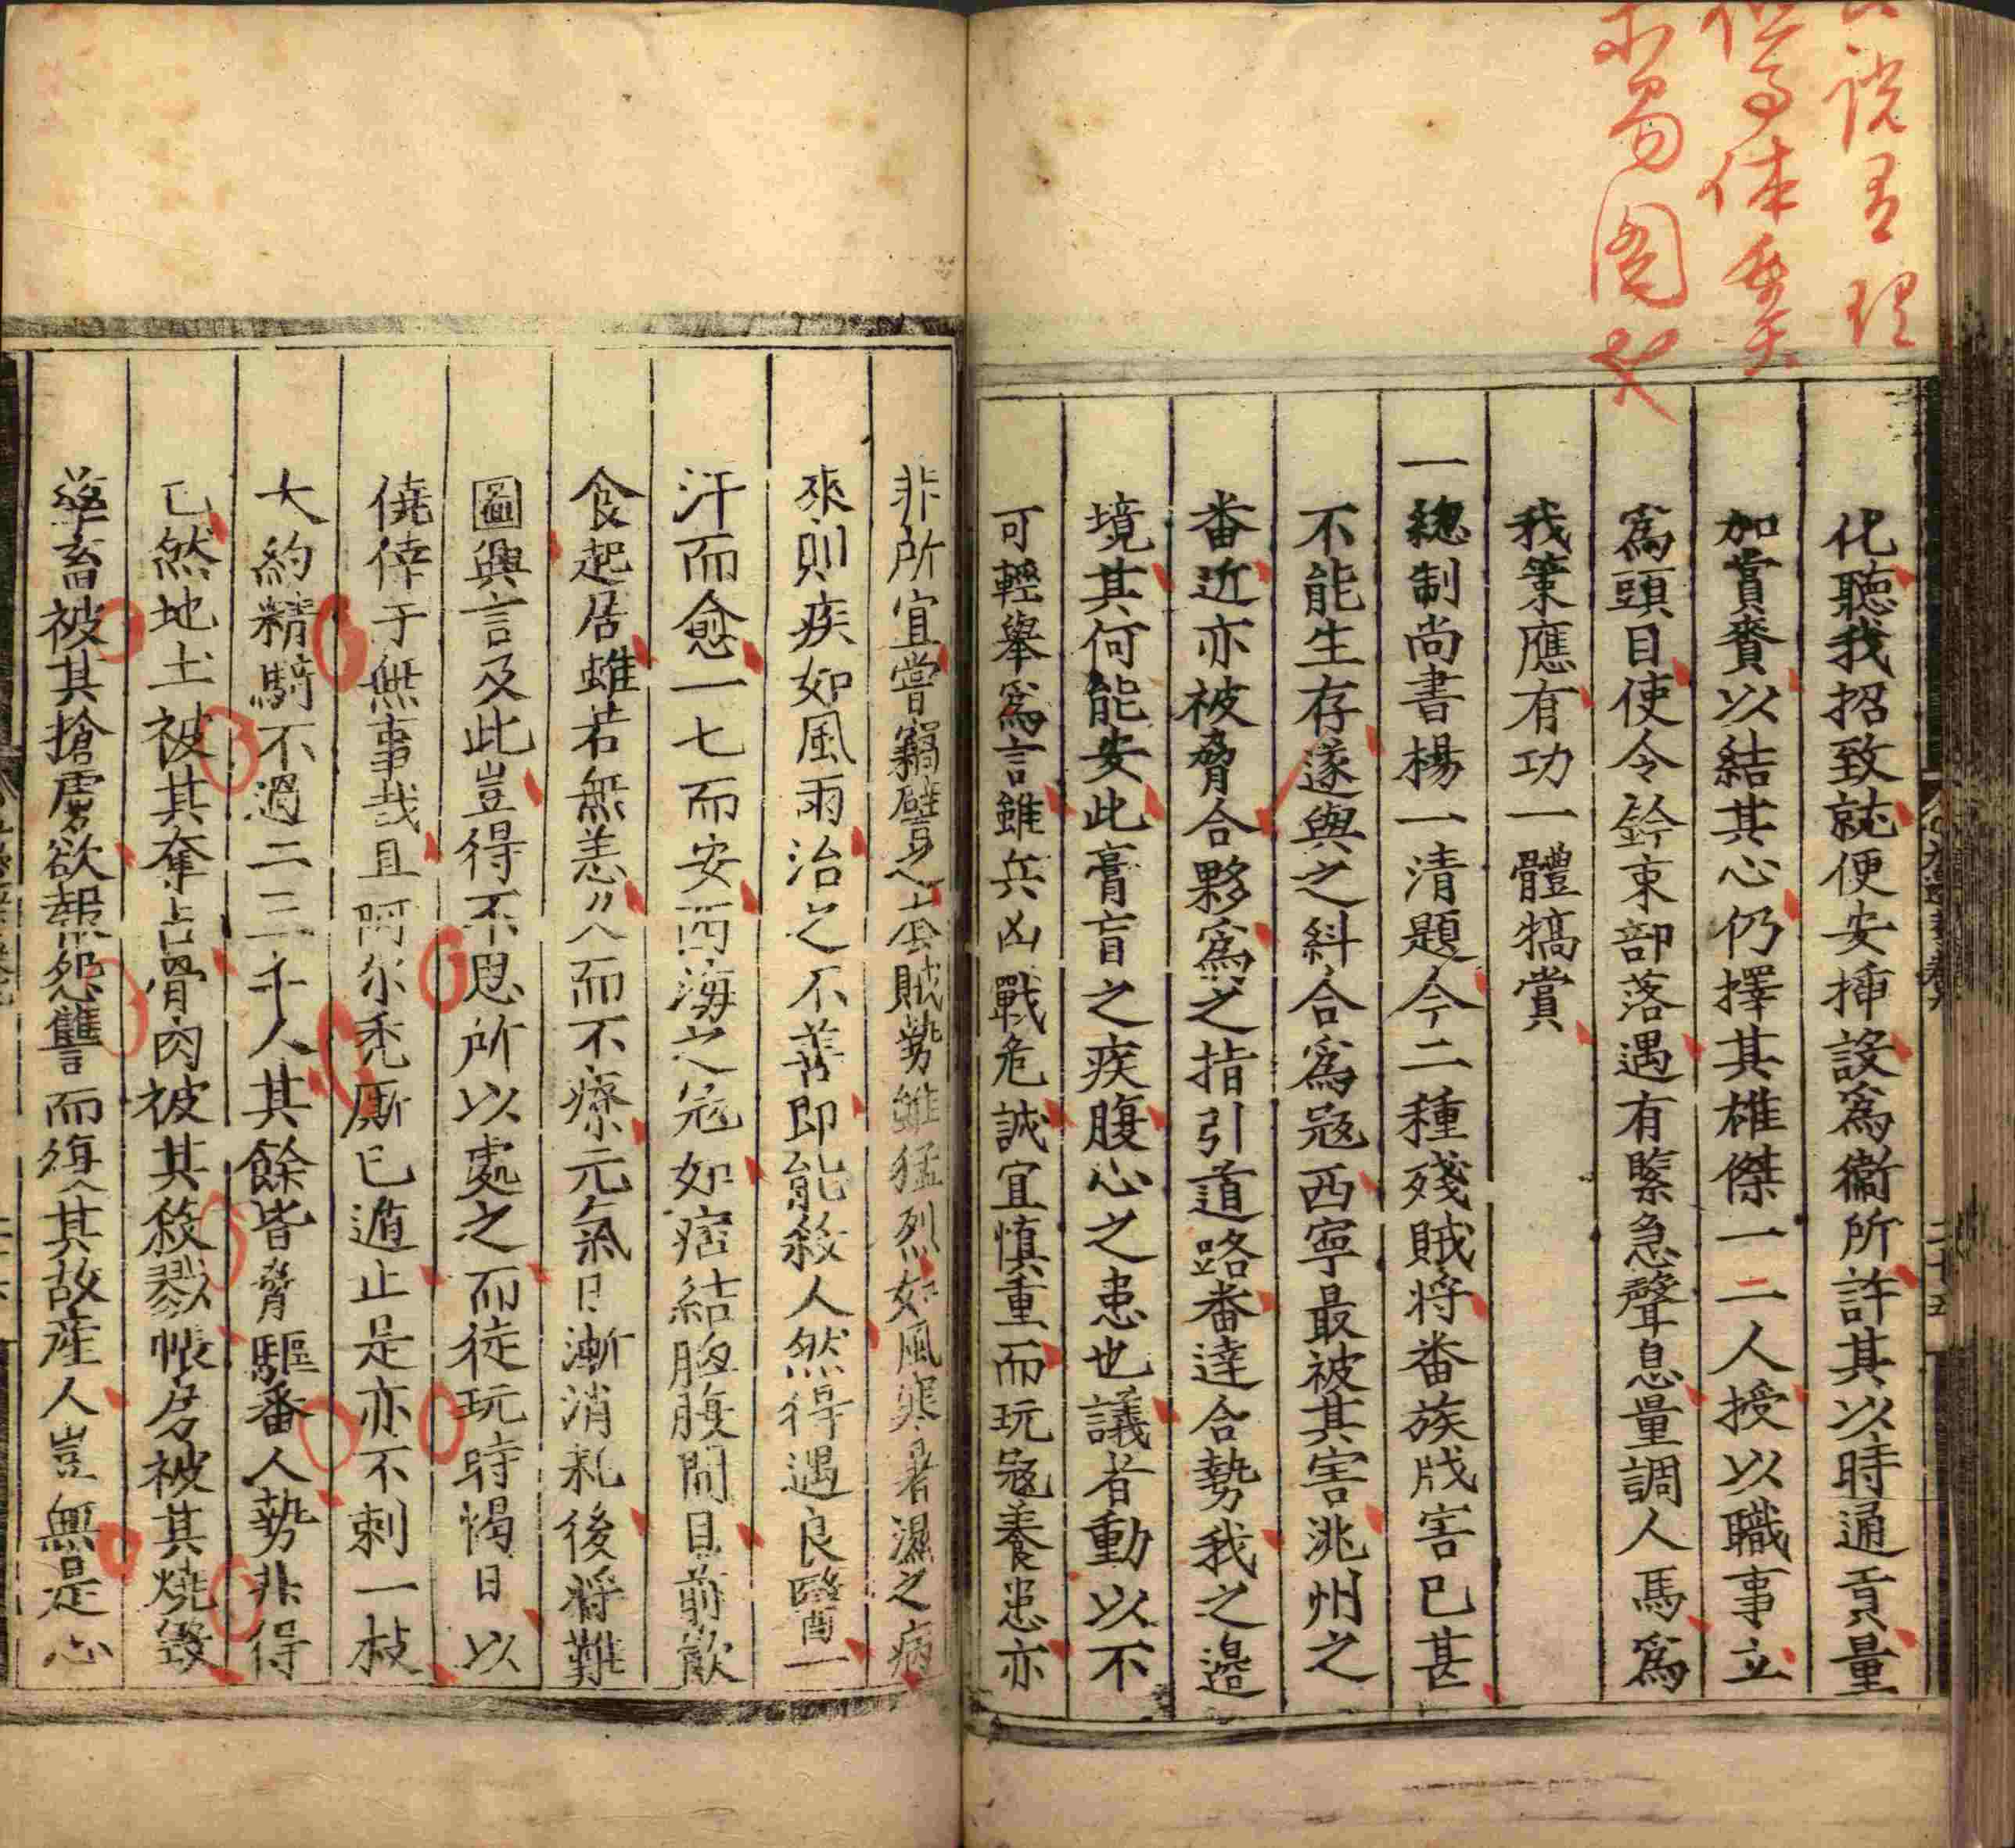 說有理
不易圖也
化聽我招致就便安揷設爲衞所許其以時通貢量
加賞賚以結其心仍擇其雄傑一二人授以職事立
爲頭目使令鈐束部落遇有緊急聲息量調人馬爲
我策應有功一體犒賞
一緫制尚書楊一清題今二種殘賊將畨族戕害已甚
不能生存遂與之糾合爲寇西寧最被其害洮州之
畨近亦被脅合夥爲之指引道路畨達合勢我之邉
境其何能安此膏肓之疾腹心之患也議者動以不
可輕舉爲言雖兵凶戰危誠宜慎重而玩寇養患亦
非所宜嘗竊譬之套賊勢雖猛烈如風寒暑濕之病
來則疾如風雨治之不善即能殺人然得遇良醫一
汗而愈一七而安西海之寇如痞結胷腹間目前歃
食起居雖若無恙〃久而不療元氣日漸消耗後將難
圖興言及此豈得不思所以處之而徒玩時愒日以
僥倖于無事哉且阿尔禿厮已遁止是亦不剌一枝
大約精騎不過二三千人其餘皆脅驅畨人勢非得
已然地土被其奪占骨肉被其殺戮帳房被其燒毀
孳畜被其搶虜欲報怨讐而復其故産人豈無是心